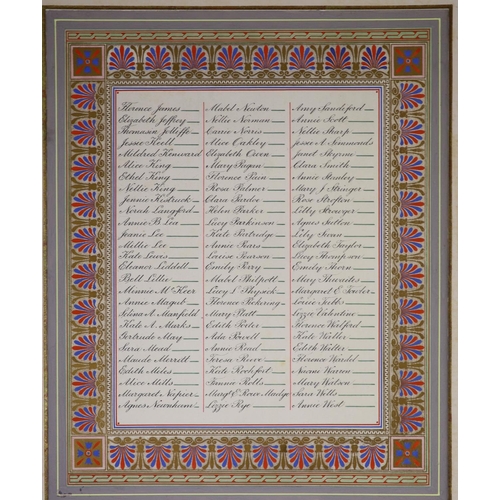 Florence James Mabel Newton Amy Sandiford
Elizabeth Jeffery Nellie Norman Annie Scott
Thomasin Jolleffe Carrie Norris Nellie Sharp
Jessie Keell Alice Oakley Jessie A Simmonds
Mildred Kennard Elizabeth Owen Janet Skyrme
Alice King Mary Pagan Clara Smith
Ethel King Florence Pain Annie Stanley
Nellie King Rosa Palmer Mary J Stringer
Jennie Clara Pardoe Rose
Norah Langford Helen Parker Lilly
Annie B Lea Lucy Parkinson Agnes Sutton
Jeanie Lee Kate Partridge Lily Swan
Mellie Lee Annie Pears Elizabeth Taylor
Kate Lewis Louise Pearson Lucy Thompson
Eleanor Liddell Emily Perry Emily Thorn
Bell Lillie Mabel Philpott May Thwaites
Minnie McKeer Lucy S Physick Margaret E Towler
Annie Florence Pickering Louie Tubbs
Selina A Manfield Mary Platt Lizzie Valentine
Kate A Marks Edith Poter Florence Walford
Gertrude May Ada Powell Kate Waller
Sara Mead Annie Read Edith Waller
Maude Merrett Teresa Reeve Florence Wardel
Edith Miles Kate Rochfort Naomi Warren
Alice Mills Emma Robbs Mary Watson
Margaret Napier Margt E Rowe Madge Sara Wells
Agnes Newnham Lizzie Rye Annie West